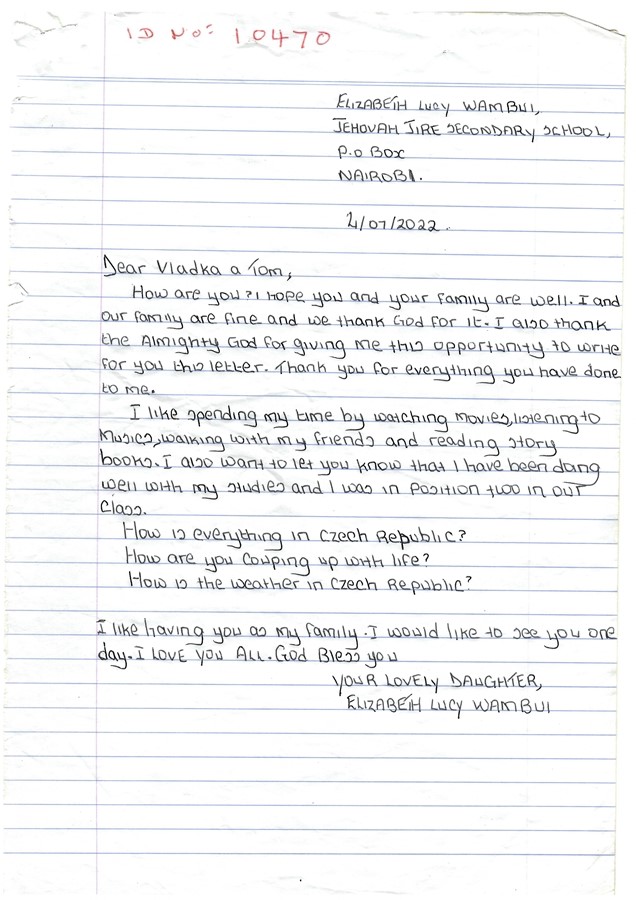 ID NO: 10470
ELIZABETH LUCY WAMBUI,
JEHOVAH JIRE SECONDARY SCHOOL,
P.O BOX
NAIROBI.
4/07/2022.
Dear Vladka a Tom,
How are you? I hope you and your family are well. I and
our family are fine and we thank God for it. I also thank
the Almighty God for giving me this opportunity to write
for you this letter. Thank you for everything you have done
to me.
I like spending my time by watching movies, listening to
Musics, walking with my friends and reading story
books. I also want to let you know that I have been doing
well with my studies and I was in position two in our
class.
How is everything in Czech Republic?
How are you couping up with life?
How is the weather in Czech Republic?
I like having you as my family. I would like to see you one
day. I LOVE YOU ALL. God Bless you
YOUR LOVELY DAUGHTER,
ELIZABETH LUCY WAMBUI